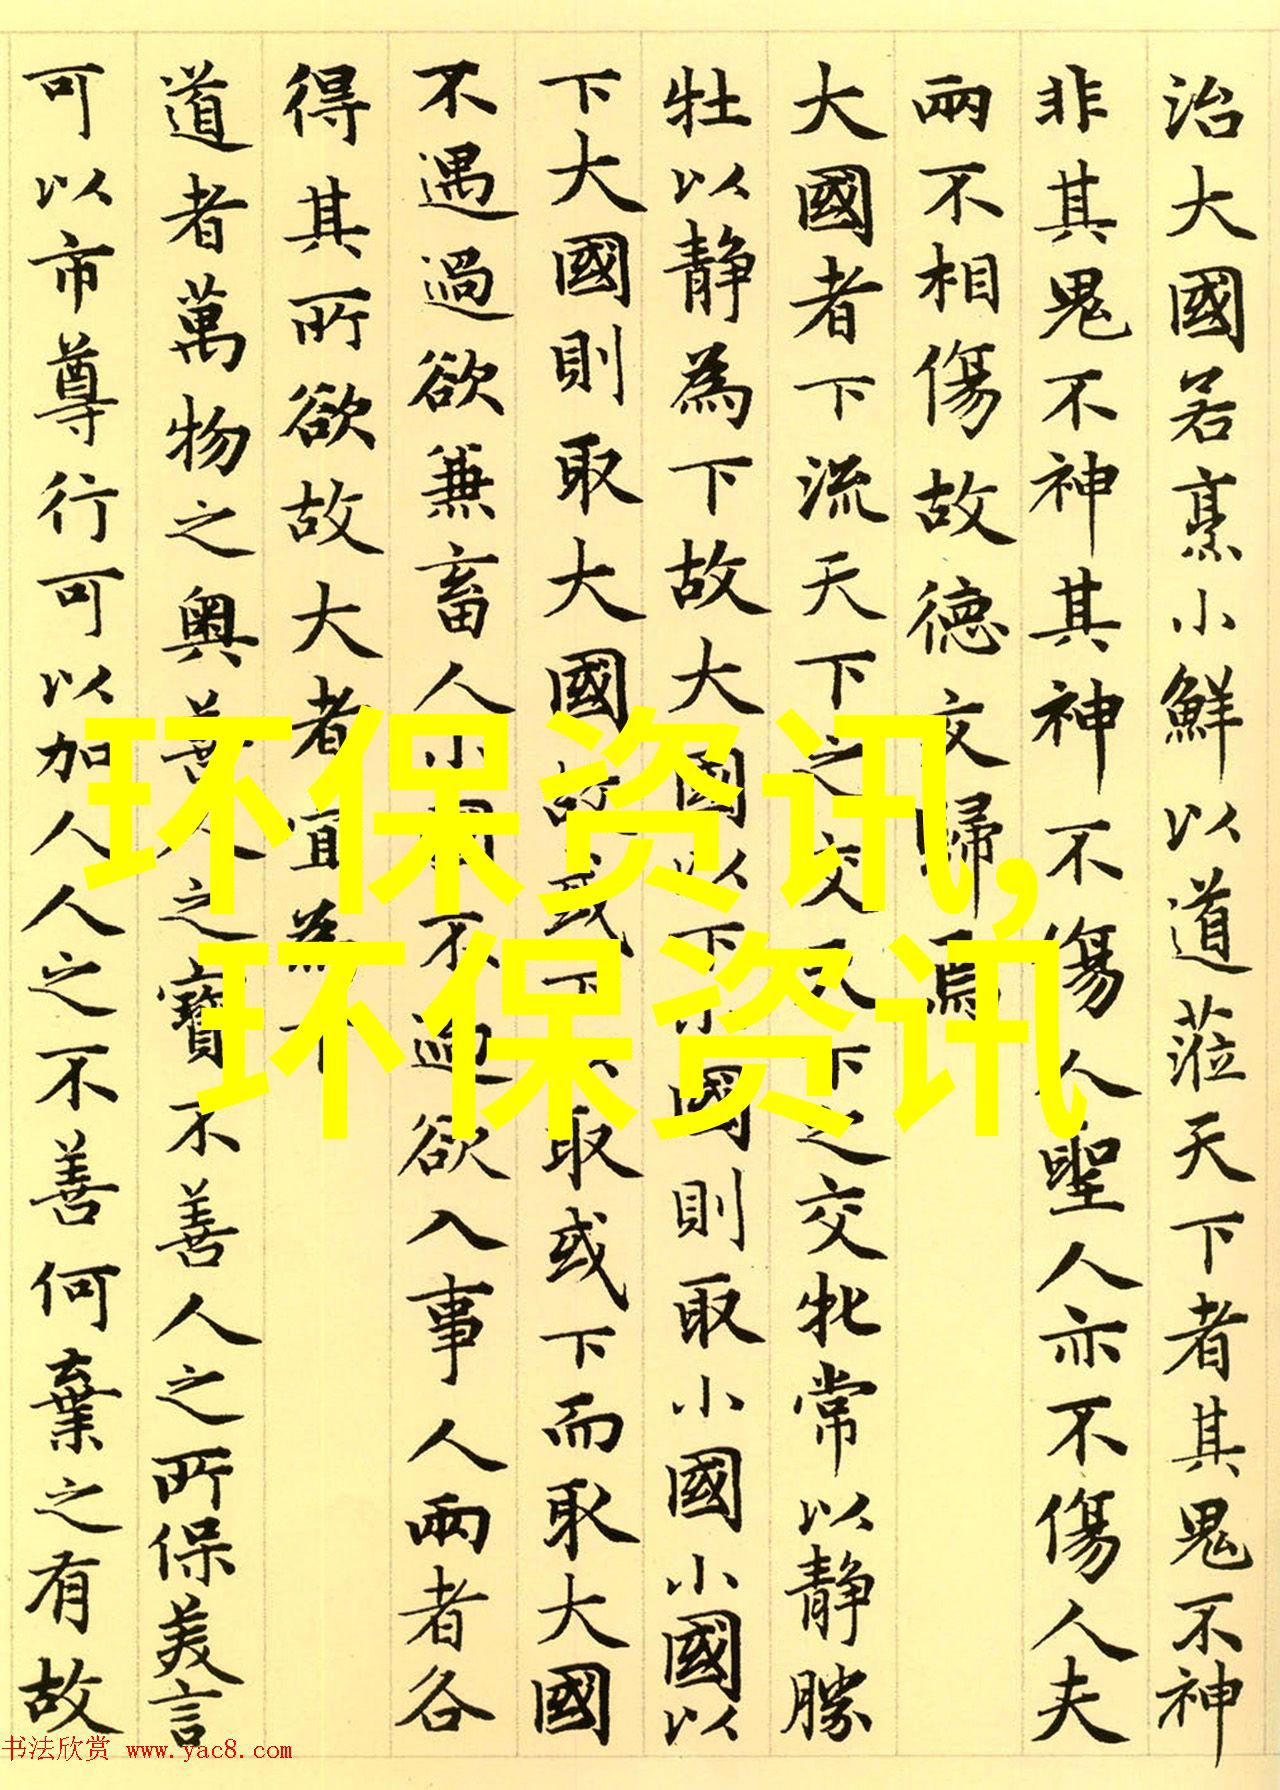 治大國若烹小鮮以道蒞天下者其鬼不神
非其鬼不神其神不傷人聖人亦不傷人夫
兩不相傷故德交歸焉
大國者下流天下之交天下之交牝常以靜勝
牡以靜為下故大國以下小國則取小國小國以
下大國則取大國故或下以取或下而取大國
不遇過欲兼畜人小國不過欲入事人兩者各
得其所欲故大者宜為下
道者萬物之奧善人之寶不善人之所保美言
可以市尊行可以加人人之不善何棄之有故
环保资讯,
环保资讯
书法欣赏 www.yac8.com